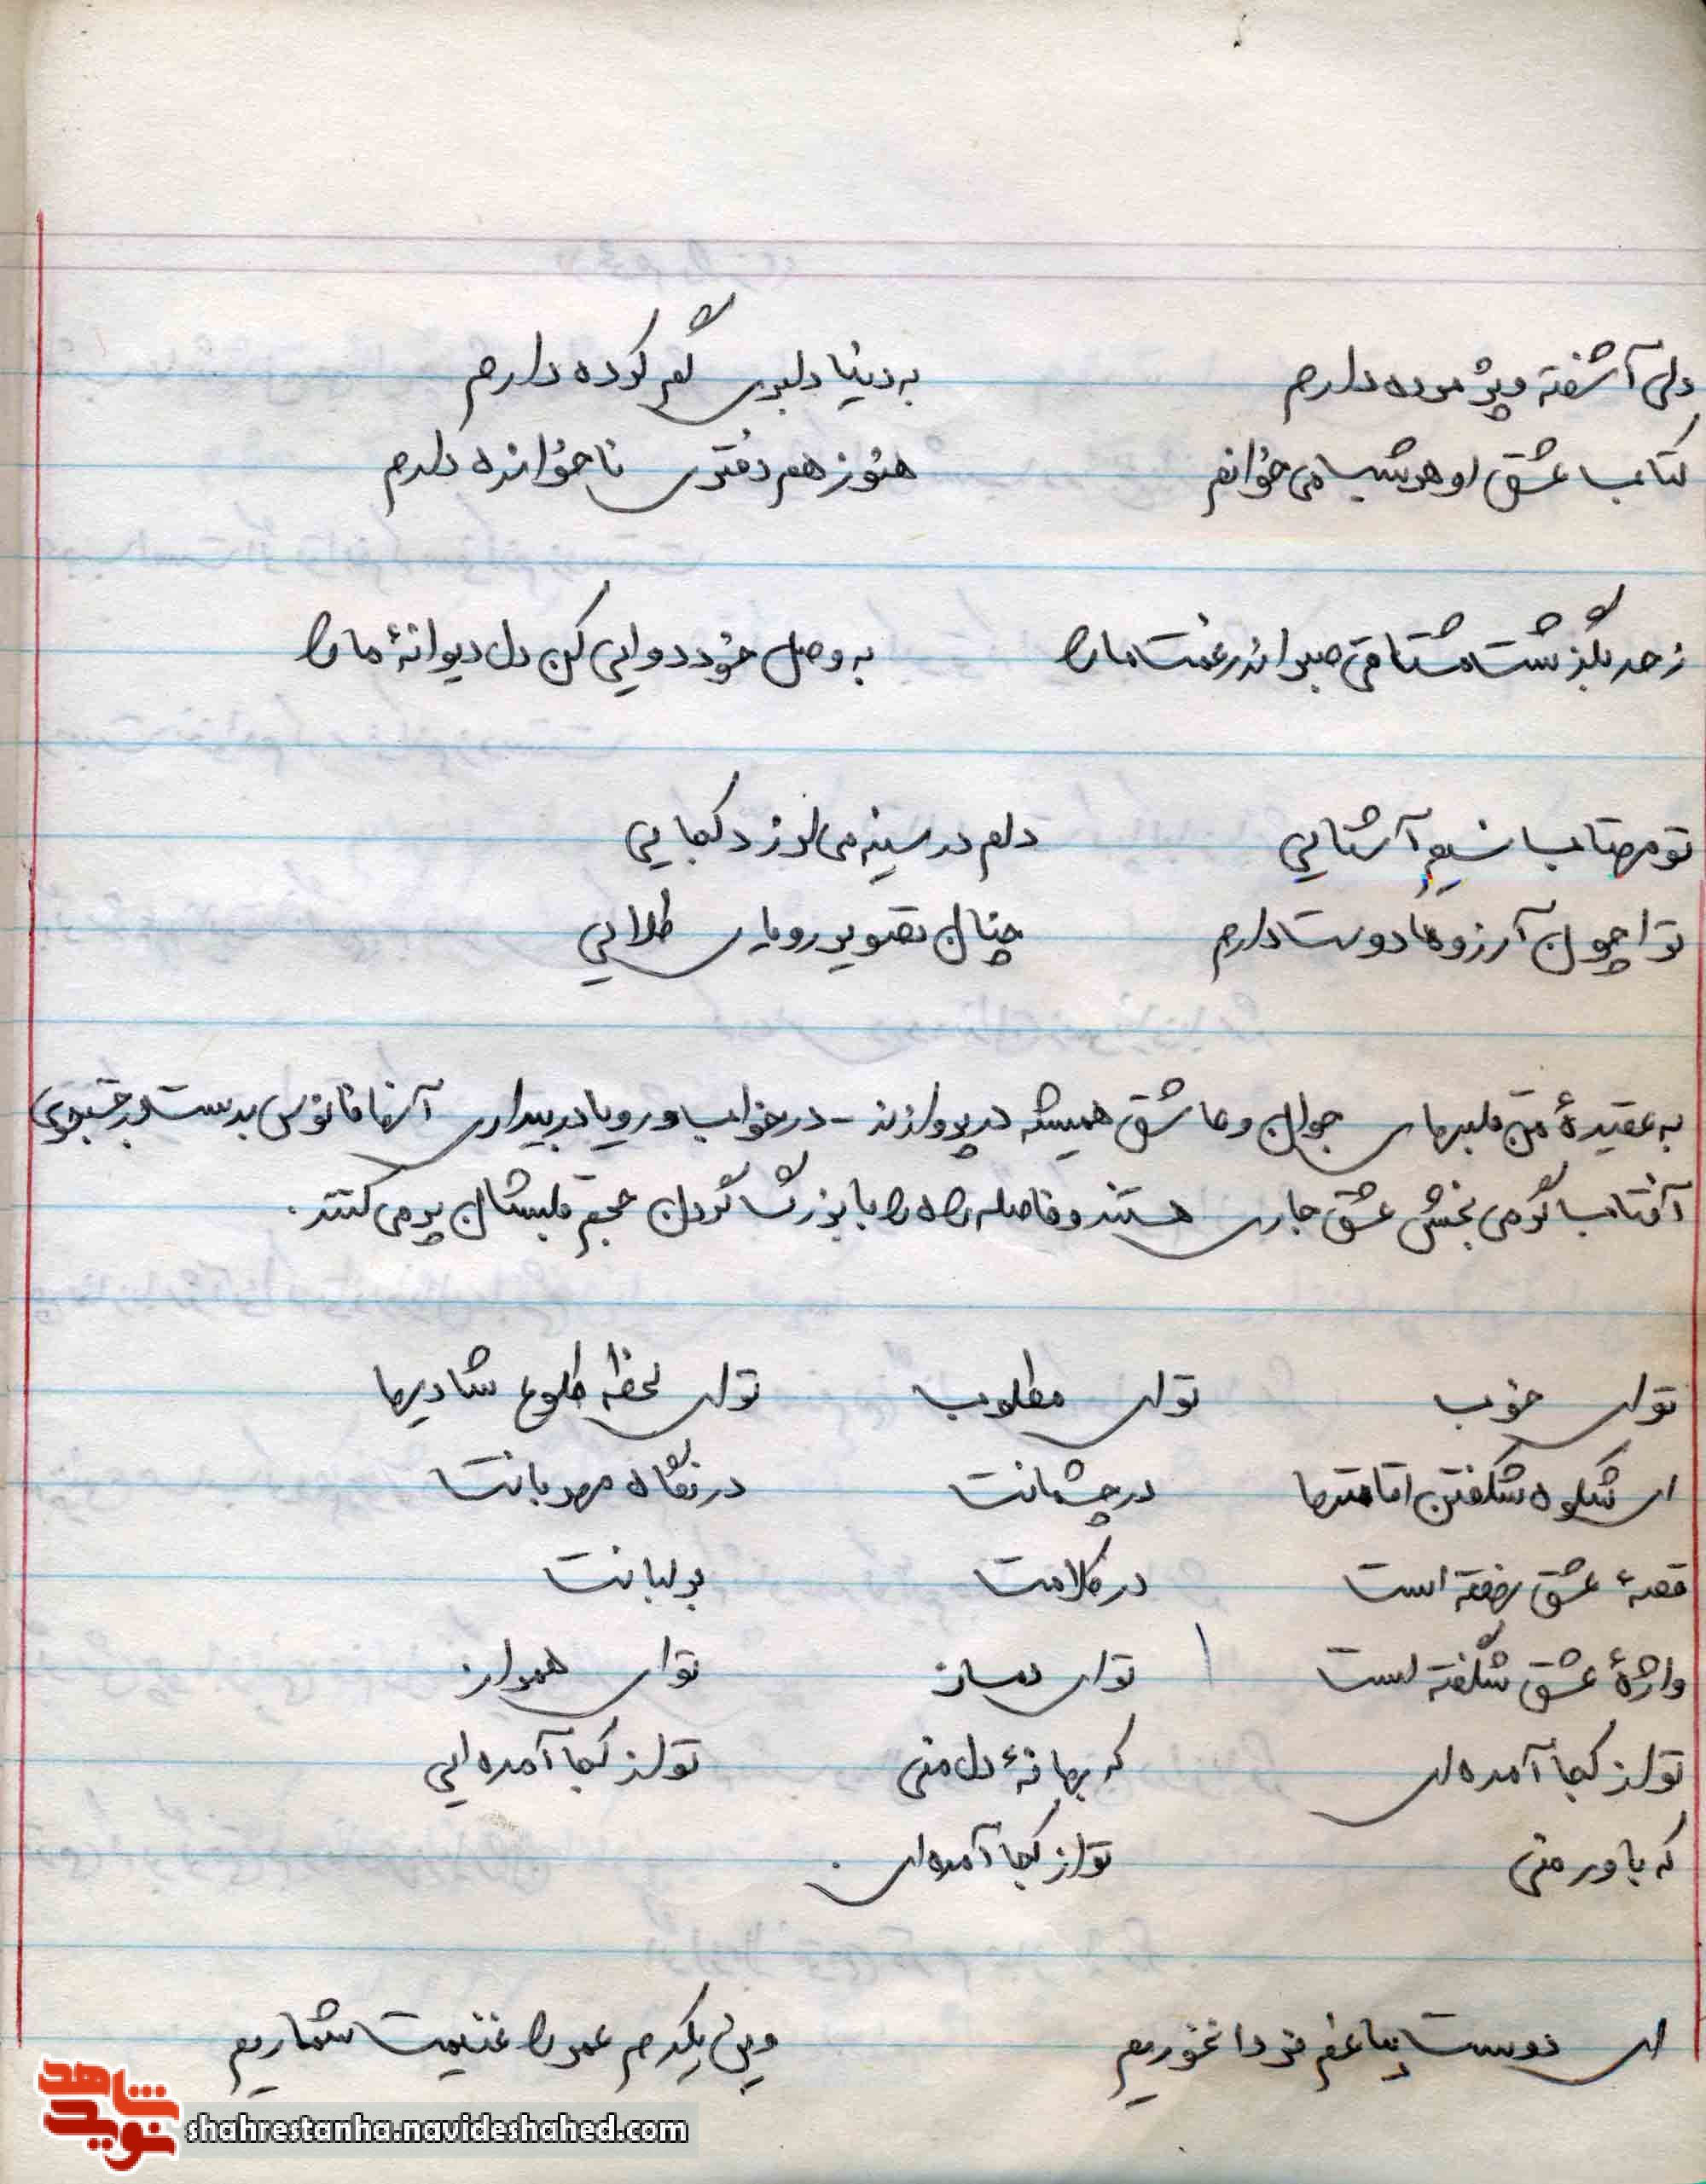 دلی آشفته و پژمرده دارم به دنیا دلبری گم کرده دارم
کتاب عشق او هر شب می خوانم هنوز هم دفتری ناخوانده دارم
ز حد بگذشت مشتاقی صبر اندر غمت ما را به وصل خود دوایی کن دل دیوانهٔ ما را
تو مهتاب نسیم آشنایی دلم در سینه می لرزد کجایی
ترا چون آرزوها دوست دارم چنان تصویر رویای طلایی
به عقیدهٔ من قلبهای جوان و عاشق همیشه در پروازند - در خواب و رویا در بیداری آنها فانوس بدست در جستجوی
آفتاب گرمی بخش عشق جاری هستند و فاصله راه را با بزرگ کردن حجم قلبشان پر می کنند.
تو ای خوب تو ای مطلوب تو ای لحظه طلوع شادیها
ای شکوه شکفتن اقامتها در چشمانت در نگاه مهربانت
قصهٔ عشق نهفته است در کلامت بر لبانت
واژهٔ عشق شکفته است تو ای دمساز تو ای همراز
تو از کجا آمده ای که بهانهٔ دل منی تو از کجا آمده ایی
که باور منی تو از کجا آمده ای.
ای دوست بیا غم فردا نخوریم وین یکدم عمر را غنیمت شماریم
شاهد
نوید
shahrestanha.navideshahed.com